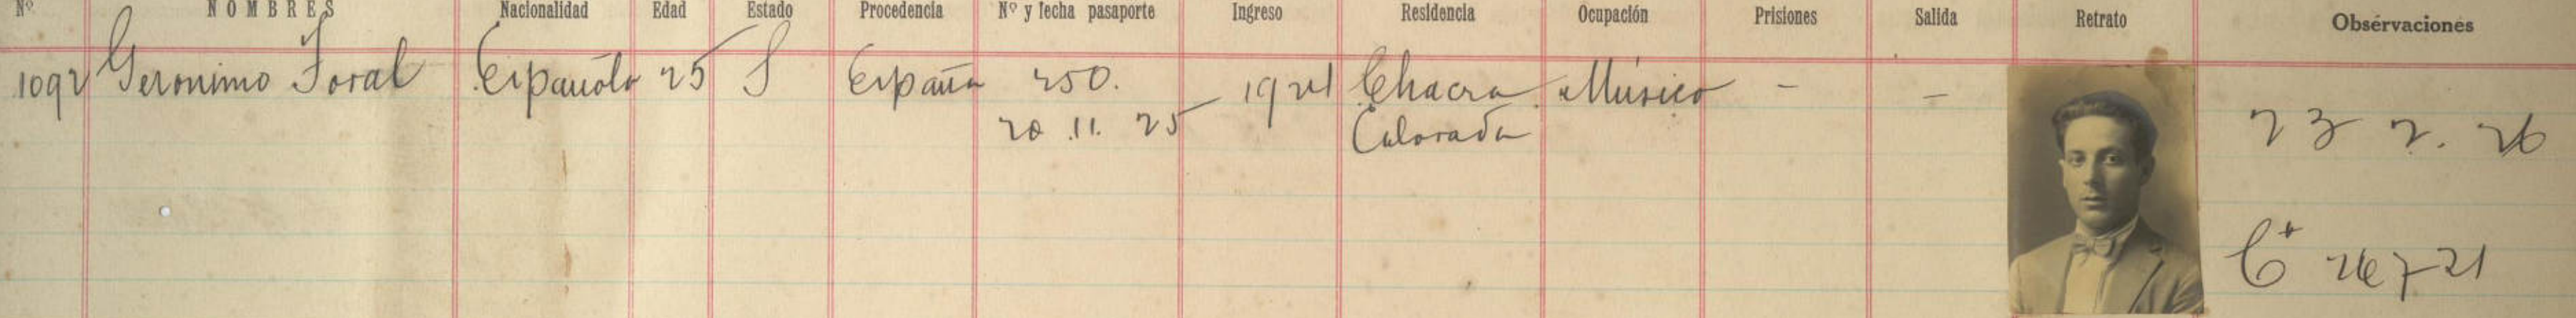 Nº NOMBRES Nacionalidad Edad Estado Procedencia Nº y fecha pasaporte Ingreso Residencia Ocupación Prisiones Salida Retrato Observaciones
1092 Geronimo Toral Española 25 S España 250. 1921 Chacra Músico - -
20 11. 25 Colorada 23 2. 26
C* 26 7-21